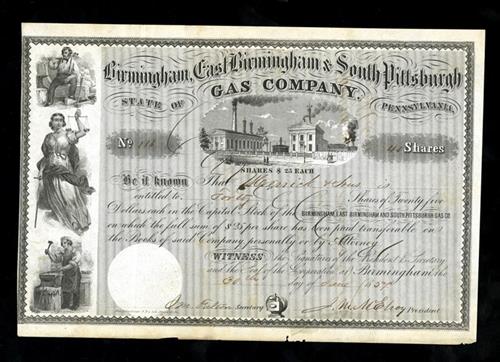 Birmingham, East Birmingham & South Pittsburgh
STATE OF GAS COMPANY. PENNSYLVANIA.
No Shares
SHARES $ 25 EACH
Be it known That is
entitled to Forty Shares of Twenty five
Dollars each in the Capital Stock of the BIRMINGHAM, EAST BIRMINGHAM AND SOUTH PITTSBURGH GAS CO.
on which the full sum of $25 per share has been paid transferable on
the Books of said Company personally or by Attorney
WITNESS the Signatures of the President & Secretary
and the Seal of the Corporation at Birmingham the
day of June 1857
Secretary J. M. McElroy President